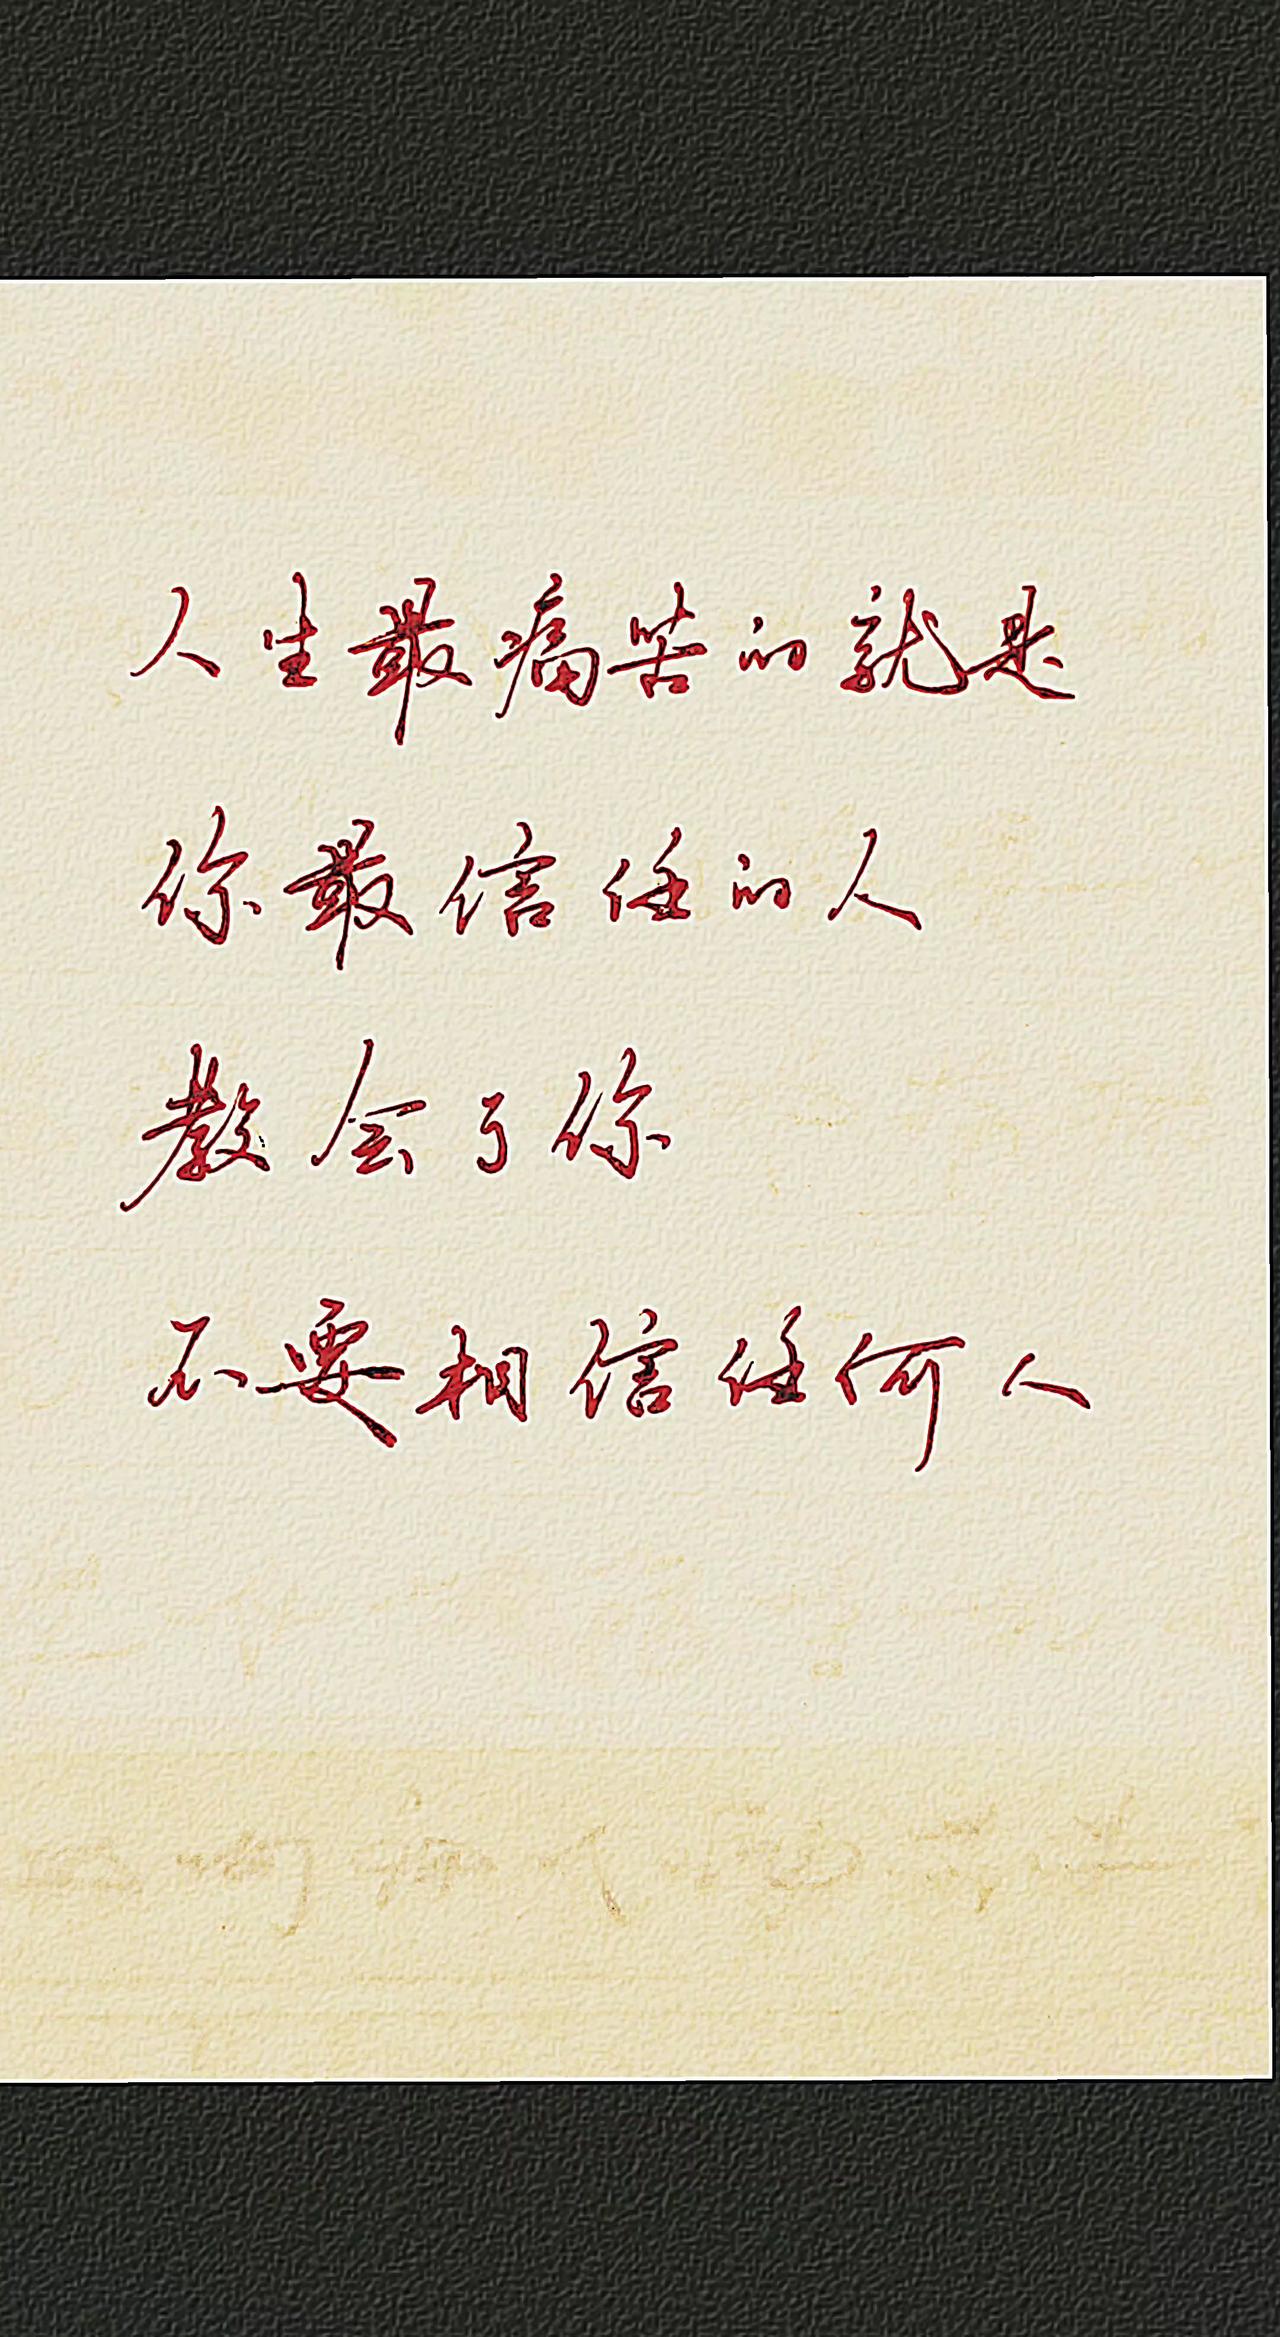 人生最痛苦的就是
你最信任的人
教会了你
不要相信任何人